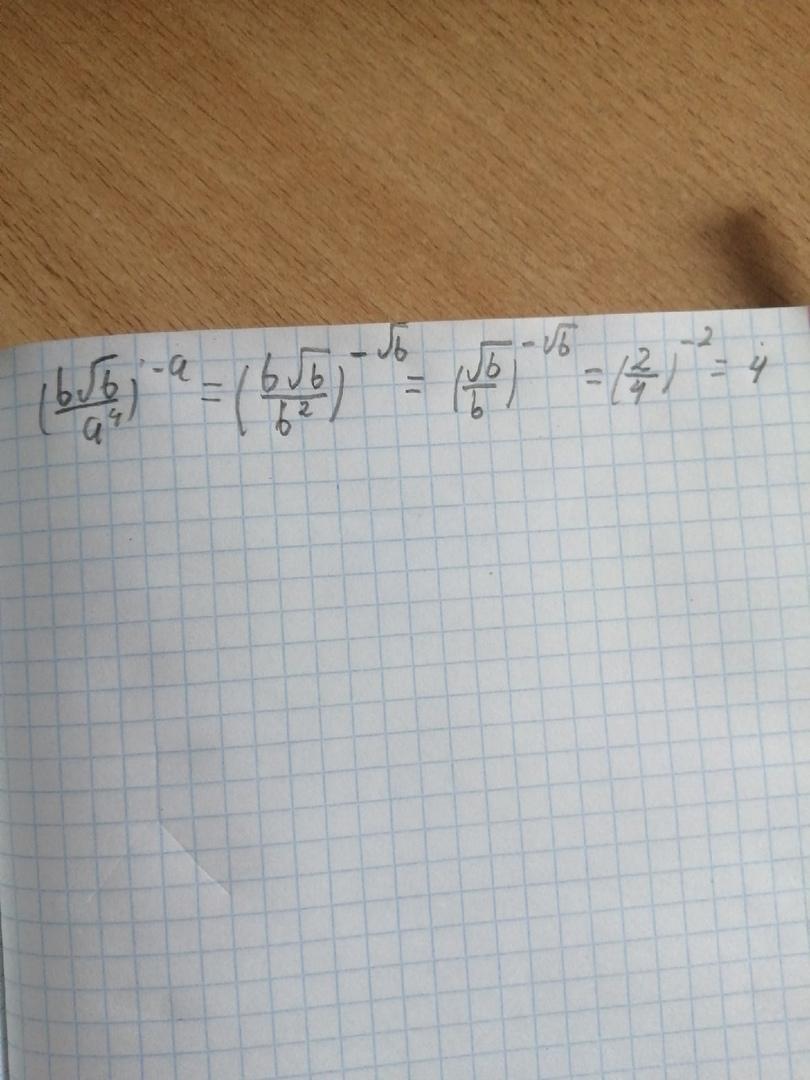 (b√b/a⁴)⁻ᵃ = (b√b/b²)^(-√b) = (√b/b)^(-√b) = (2/4)⁻² = 4